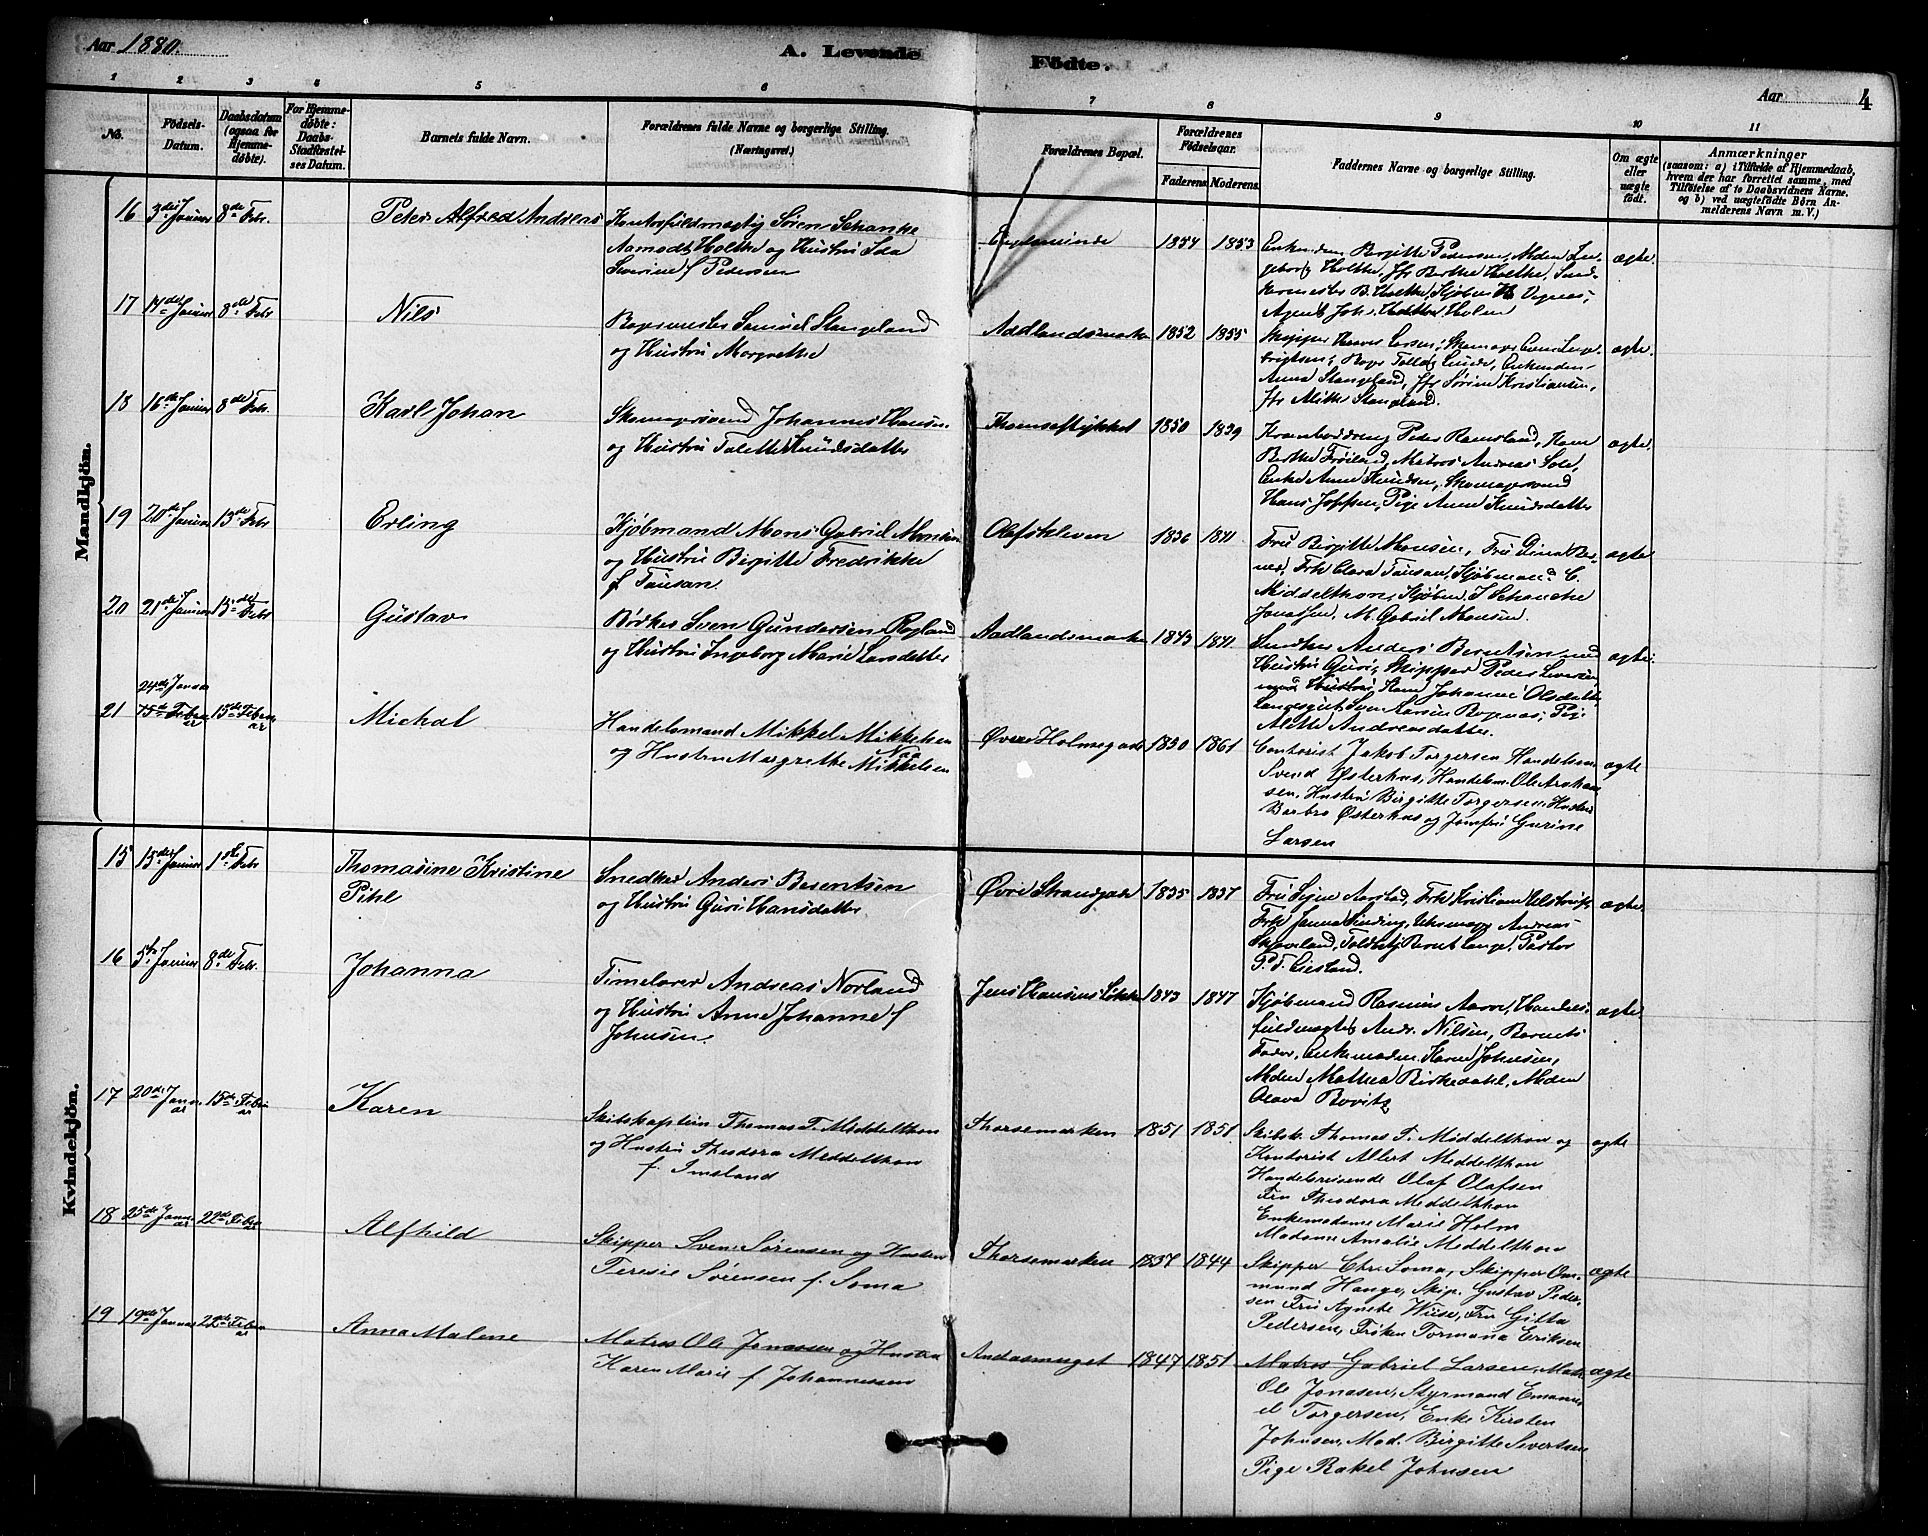 Aar 1880.
A. Levende Fødte.
Aar 4
1 2 3 4 5 6 7 8 9 10 11
No.
Fødsels-Datum.
Daabsdatum (ogsaa for Hjemme-døbte).
For Hjemme-døbte: Daabs-Stadfæstel-ses Datum.
Barnets fulde Navn.
Forældrenes fulde Navne og borgerlige Stilling. (Næringsvei.)
Forældrenes Bopæl.
Forældrenes Fødselsaar.
Faderens. Moderens.
Faddernes Navne og borgerlige Stilling.
Om ægte eller uægte født.
Anmærkninger
(saasom: a) i Tilfælde af Hjemmedaab, hvem der har forrettet samme, med Tilføielse af to Daabsvidners Navne. og b) ved uægtefødte Børn An-melderens Navn m. V.)
Mandkjön.
16 3die Januar 8de Febr. Peter Alfred Andreas
Kontorfuldmægtig Søren Schanke
Aamodt Holtke og Hustru Ida
Severine f Pedersen
1853
Birgitte Pedersen, Meden In-
geborg Holtke, Jfr Berthe Holtke,
ægte.
17 14de Januar 8de Febr Nils
Samuel Stangeland
og Hustru Margrethe
Aadlandsmarken 1852 1855
Skipper Larsen,
Anna Stangeland, Jfr Sørine Kristiansen,
Jfr Mille Stangeland.
ægte.
18 16de Januar 8de Febr. Karl Johan
Skomagersvend Johannes Hansen
og Hustru Talette Knudsdatter
1850 1839
Peder Ramsland, Kone
Berthe Frøiland, Matros Andreas Sole,
Enke Anne Knudsen, Skomagersvend
Hans Joppsen, Pige Anne Knudsdatter
ægte.
19 20de Januar 15de Febr Erling
Kjøbmand Mons Gabriel Monsen
og Hustru Birgitte Fredrikke
f Tausan.
Olafskleven 1836 1841
Fru Birgitte Monsen, Fru Dina Ber-
ner, Frk Clara Tausan, Kjøbmand C.
Middelthon, Kjøbm. I Schanche
Jonassen, M. Gabriel Monsen.
ægte
20 21de Januar 15de Febr Gustav
Bødker Sven Gundersen Rogland
og Hustru Ingeborg Marie Larsdatter
Aadlandsmarken 1843 1841
Snedker Anders Berntsen med
Hustru Guri, Skipper Peder Seversen
med Hustru, Kone Johanne Olsdatter
Sven Larsen Bognæs, Pige
Alette Andreasdatter.
ægte.
21 24de Januar 15de Februar Michal
Handelsmand Mikkel Mikkelsen
og Hustru Margrethe Mikkelsen
Øvre Holmegade 1850 1861
Contorist Jakob Torgersen Handelsm
Svend Østerhus, Handelsm. Ole Arohan
sen, Hustru Birgitte Torgersen, Hustru
Barbro Østerhus og Jomfru Gurine
Larsen
ægte
Kvindekjön.
15 15de Januar 1ste Febr Thomasine Kristine
Pihl
Snedker Anders Berentsen
og Hustru Guri Hansdatter
Øvre Strandgade 1835 1837
Aarstad, Frk Kristiane
Frk Janna Kinding, Uhrmager Andreas
Skjæveland, Toldbetj Bernt Lange, Pastor
ægte.
16 5te Januar 8de Febr. Johanna
Timelærer Andreas Norland
og Hustru Anne Johanne f
Johnsen.
Jens Hansens Løkke 1843 1847
Kjøbmand Rasmus Aarre, Handels-
fuldmægtig Andr. Nilsen, Barnets
Fader, Enkemaden Karen Johnsen,
Meden Mathea Birkedahl, Meden
Olava Bovitz
ægte.
17 20de Januar 15de Februar Karen
Skibskaptein Thomas T. Middelthon
og Hustru Theodora Meddelthon
f. Imsland
Thorsemarken 1851 1851
Skibsk. Thomas T. Middelthon og
Kontorist Allert Meddelthon
Handelsreisende Olaf Olafsen
Fru Theodora Meddelthon
Enkemadame Marie Holm
Madame Amalie Meddelthon
ægte
18 25de Januar 22de Februar Alfhild
Skipper Sven Sørensen og Hustru
Teresie Sørensen f. Soma
Thorsemarken 1837 1844
Skipper Chr. Soma, Skipper Om-
mund Hauge, Skip. Gustav Peder-
sen Fru Agnete Wiise, Fru Gitta
Pedersen, Frøken Tormana Eriksen
ægte
19 19de Januar 22de Februar Anna Malene
Matros Ole Jonassen og Hustru
Karen Marie f. Johannessen
Andasmuget 1847 1851
Matros Gabriel Larsen, Matr.
Ole Jonasen, Styrmand Emanu-
el Torgersen, Enke Kirsten
Johnsen, Mad. Birgitte Sivertsen
Pige Rakel Johnsen
ægte